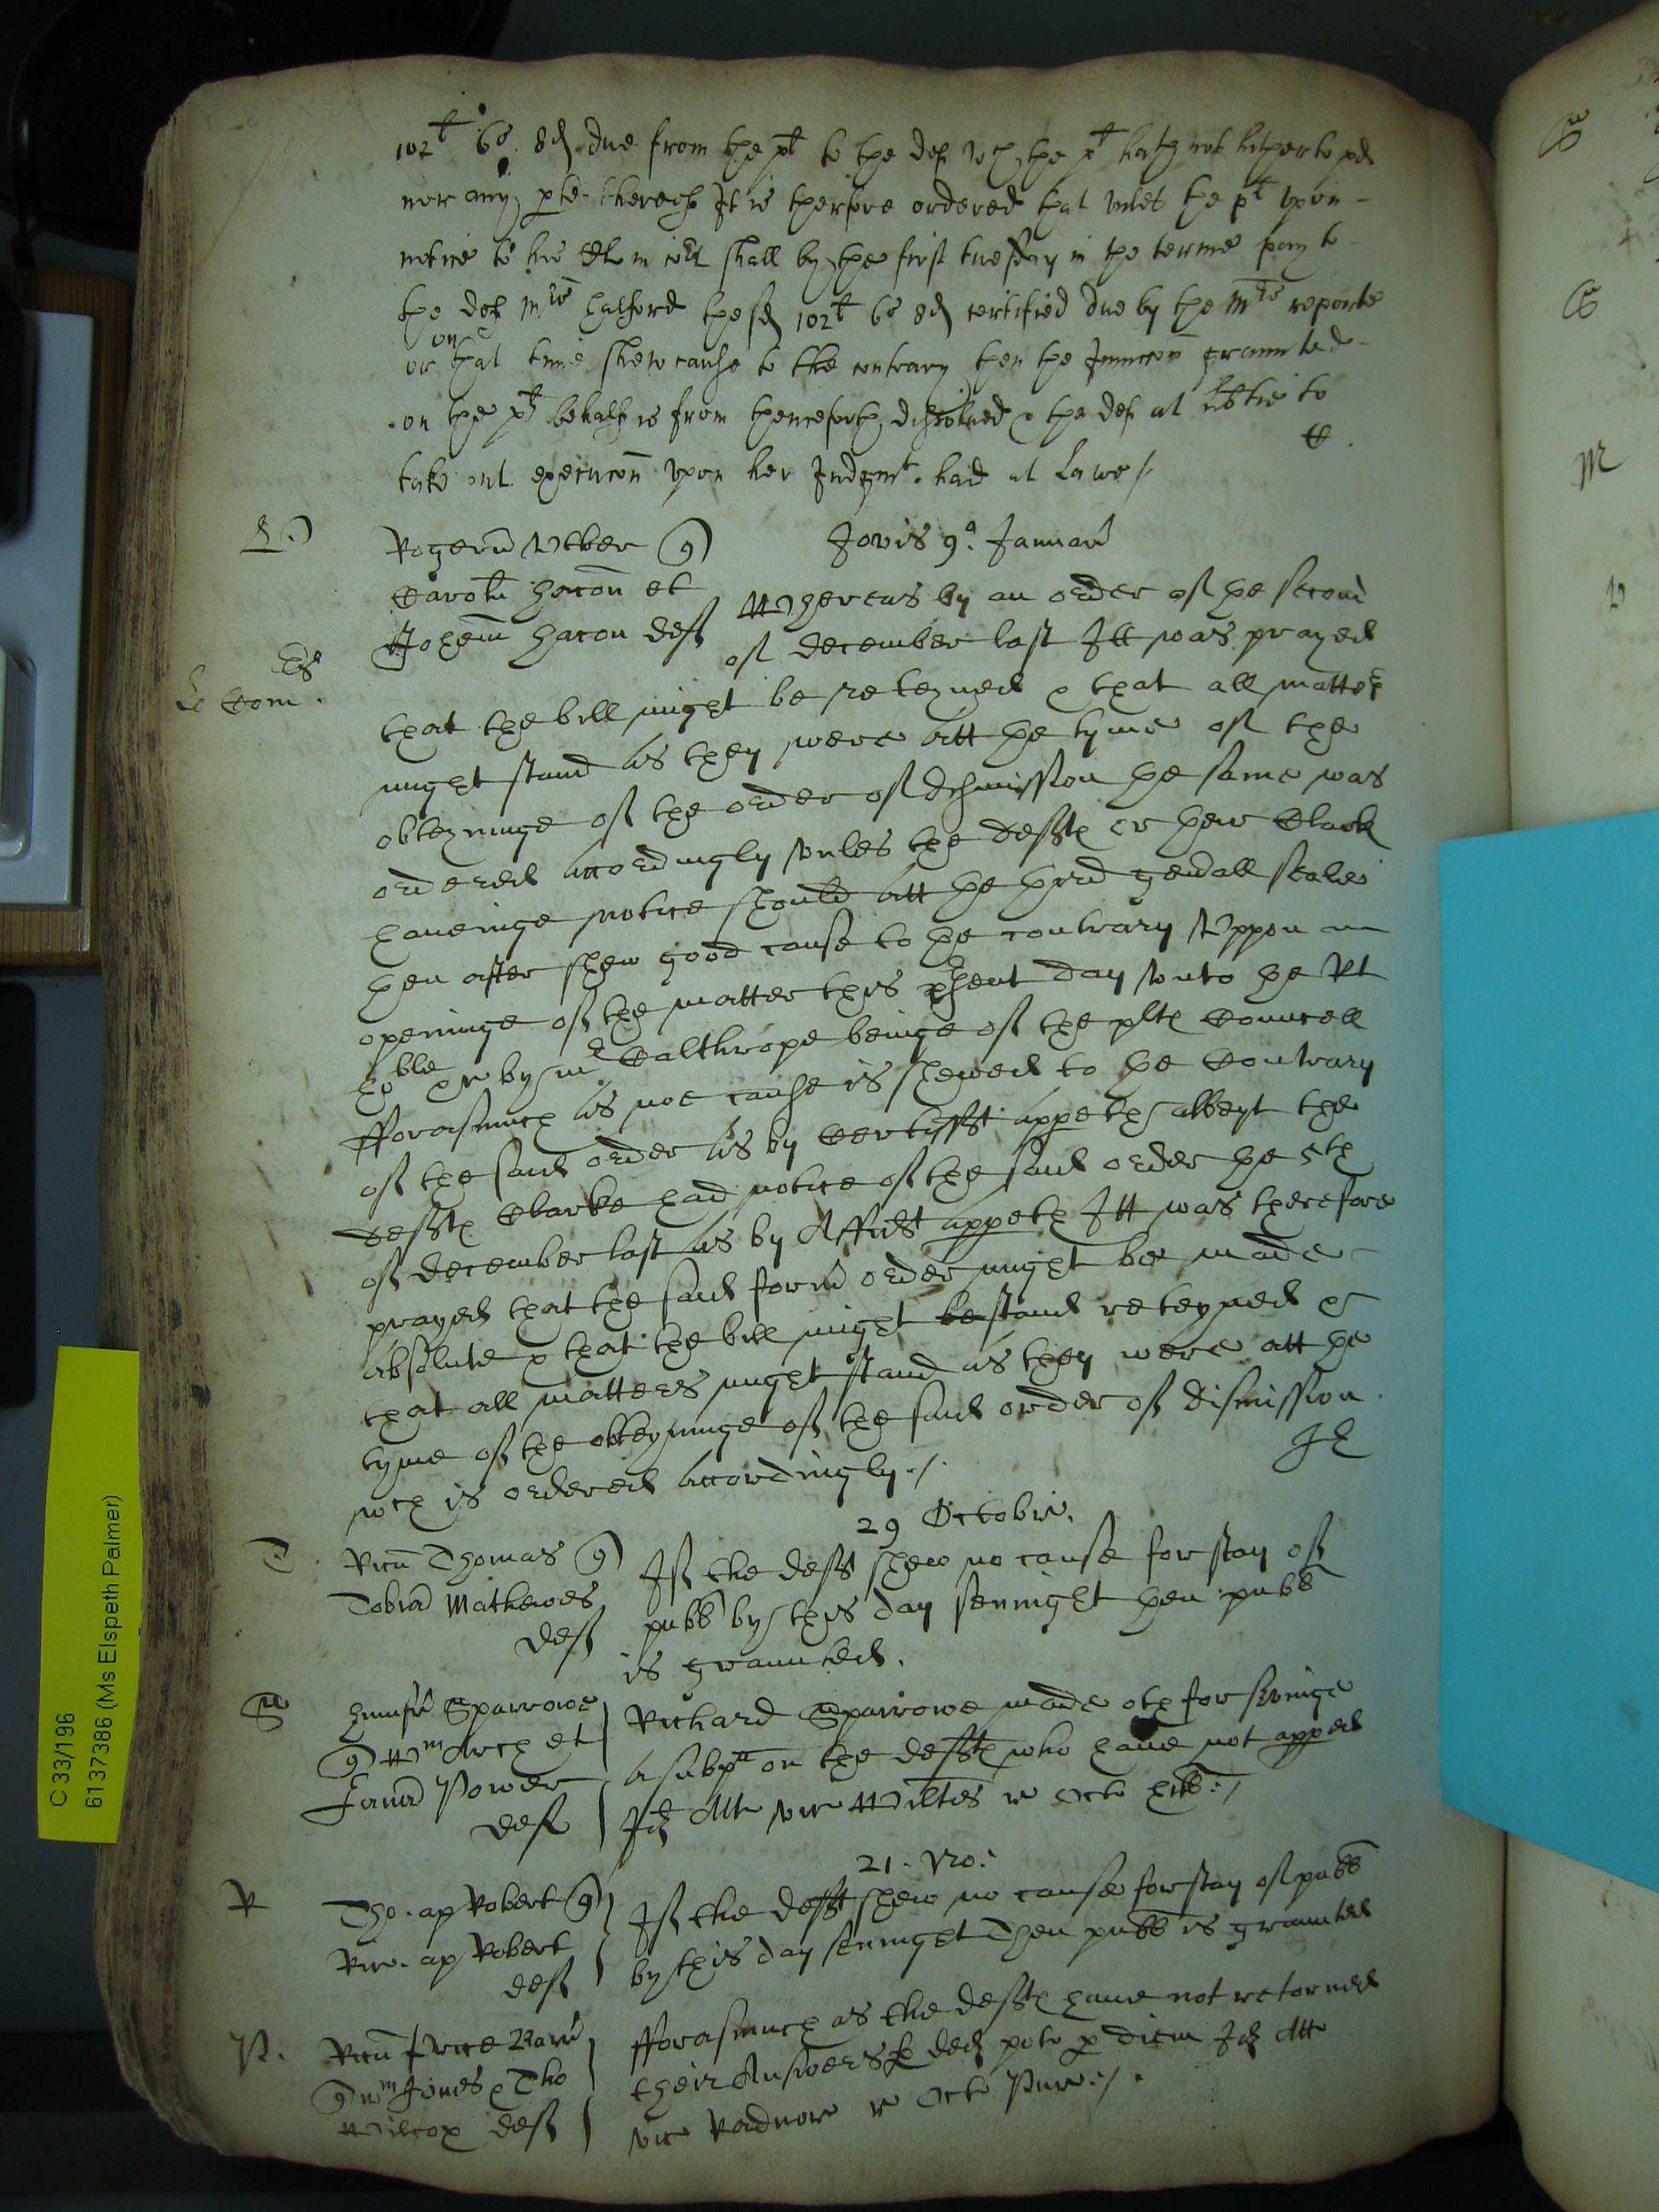 102l 6s 8d due from the plt to the def wch the plt hath not hitherto pd
nor any pte thereof It is therfore ordered that unles the plt upon
notice to his Clk in co:rt shall by the first tuesday in the terme pay to
the def Mris Halford the sd 102l 6s 8d certified due by the Mrs reporte
or
on
that time shew cause to the contrary then the Iniunccon graunted
on the plts behalf is from thenceforth dissolved & the def at libtie to
take out execucon upon her Judgmt had at Lawe /.
C.
Jovis 9o Januar
Rogerū Utber q
Carolū Hacon et
Johem Hacon deft
Whereas by an order of the second
of December last Itt was prayed
that the bill might be reteyned & that all matters
might stand as they were att the tyme of the
obteyninge of the order of dismission the same was
ordered accordingly unles the deftes or their Clark
haveinge notice should att the third generall seale
then after shew good cause to the contrary Uppon
openinge of the matter this psent day unto the Rt
hoble by Mr Calthrope beinge of the pltes Councell
fforasmuch as noe cause is shewed to the Contrary
of the said order as by Certifft appeth albeyt the
deftes Clarke had notice of the said order the 5th
of December last as by Affidt appeth Itt was therefore
prayed that the said form order might be made
absolute & that the bill might be stand reteyned &
that all matters might stand as they were att the
tyme of the obteyninge of the said order of dismission
wch is ordered accordingly ./.
29 Octobr.
T.
Ricū Thomas q
Tobiā Mathewes
deft
If the deft shew no cause for stay of
pubb by this day sennight then pubb
is graunted.
S
Humfr Sparrowe
q Wm Arch et
Janā Power
deft
Richard Sparrowe made oth for servinge
a subp on the deftes who have not apped
Id Att vic Wiltes r Octo Hill: /
21. No:
R
Tho. ap Robert q
Ric. ap Robert
deft
If the deft shew no cause for stay of pubb
by this day sennight then pubb is graunted
P.
Ricū Price Bar
q Wm Jones & Tho
Wilcox deft
fforasmuch as the deftes have not retorned
their Answers p ded pote p diem Id Att
vic Radnor r Octo Pur: /.
C 33/196
6137386 (Ms Elspeth Palmer)